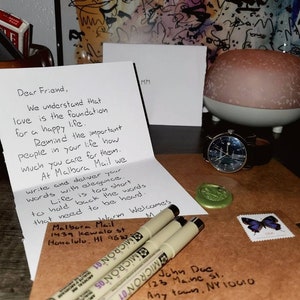 Dear Friend,
We understand that
love is the foundation
for a happy life.
Remind the important
people in your life how
much you care for them.
At Malbora Mail we
write and deliver your
words with elegance.
Life is too short
to hold back the words
that need to be heard
Warm Welcomes
MM
Malbora Mail
1439 Kewalo St
Honolulu, HI
MICRON
MICRON
John Doe
123 Maine St.
Any town, NY 10010